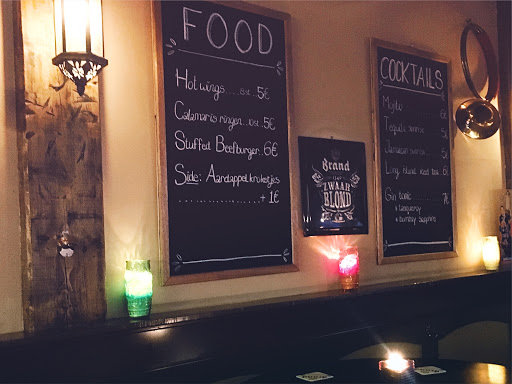 FOOD
Hot wings.....6st...5€
Calamaris ringen..10st.5€
Stuffed Beefburger..6€
Side: Aardappelkroketjes
+ 1€
Brand
ZWAAR
BLOND
COCKTAILS
Mojito
Tequila sunrise
Jamaican sunrise
Long island iced tea 8€
Gin tonic 7€
• tanqueray
• bombay sapphire